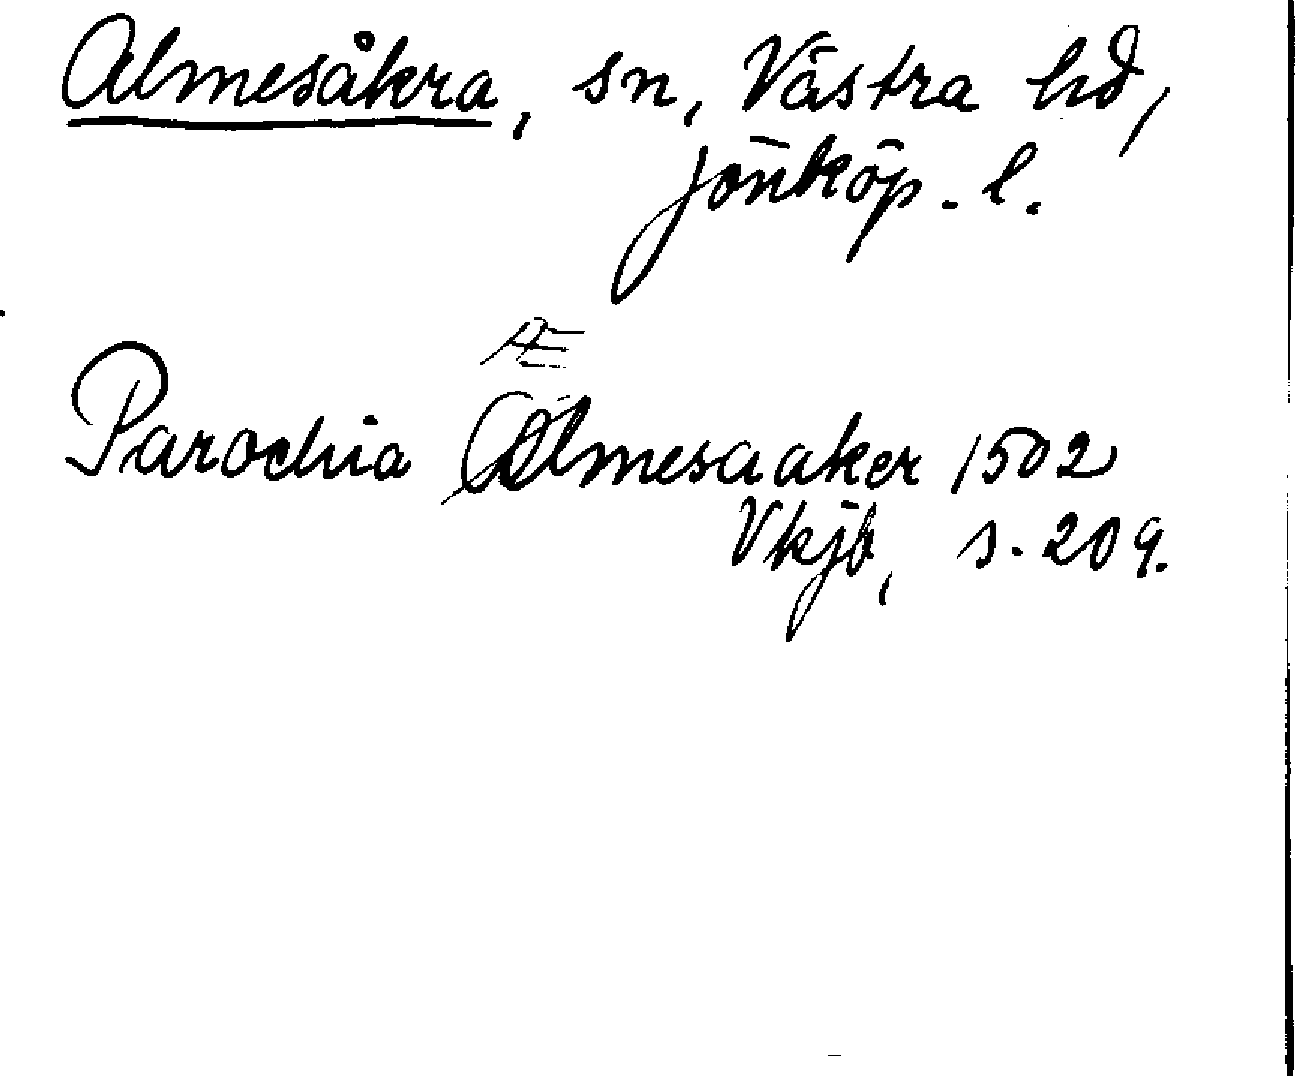 Almesåkra, sn, Västra hd,
Jönköp. l.
Æ
Parochia Ælmesaaker 1502
Vkjb, s. 209.